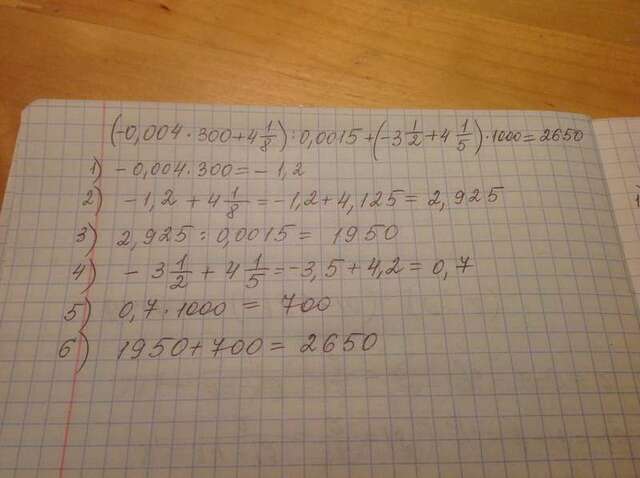 (-0,004·300+4 1/8):0,0015+(-3 1/2+4 1/5)·1000=2650
1) -0,004·300=-1,2
2) -1,2+4 1/8=-1,2+4,125=2,925
3) 2,925:0,0015=1950
4) -3 1/2+4 1/5=-3,5+4,2=0,7
5) 0,7·1000=700
6) 1950+700=2650